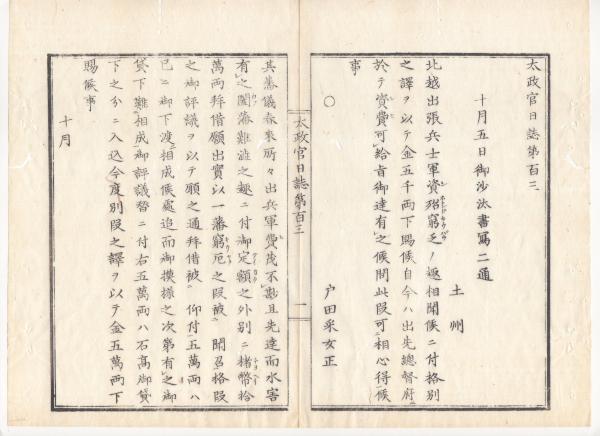 太政官日誌第百三
十月五日御沙汰書寫二通
土州
北越出張兵士軍資殆窮乏ノ趣相聞候ニ付格別
之譯ヲ以テ金五千両下賜候自今ハ出先總督府ニ
於テ資費可給旨御達有之候間此段可相心得候
事
○ 戸田采女正
太政官日誌第百三 一
其藩儀春來所々出兵軍費茂不尠且先達而水害
有之闔藩難澁之趣ニ付御定額之外別ニ楮幣拾
萬両拜借願出實以一藩窮厄之段被 聞召格段
之御評議ヲ以テ願之通拜借被 仰付五萬両ハ
已ニ御下渡ニ相成候處追而御摸樣之次第有之御
貸下難相成御評議替ニ付右五萬両ハ石高御貸
下之分ニ入込今度別段之譯ヲ以テ金五萬両下
賜候事
十月